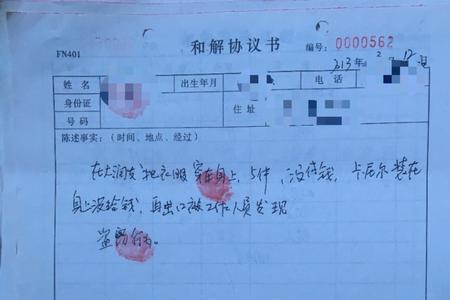 和解协议书
FN401
编号：0000562
2013年2
姓名 出生年月 电话
身份证号码 住址
陈述事实：（时间、地点、经过）
在大润发把衣服穿在身上，5件，没付钱，装在
身上没给钱，再出口被工作人员发现
盗窃行为。